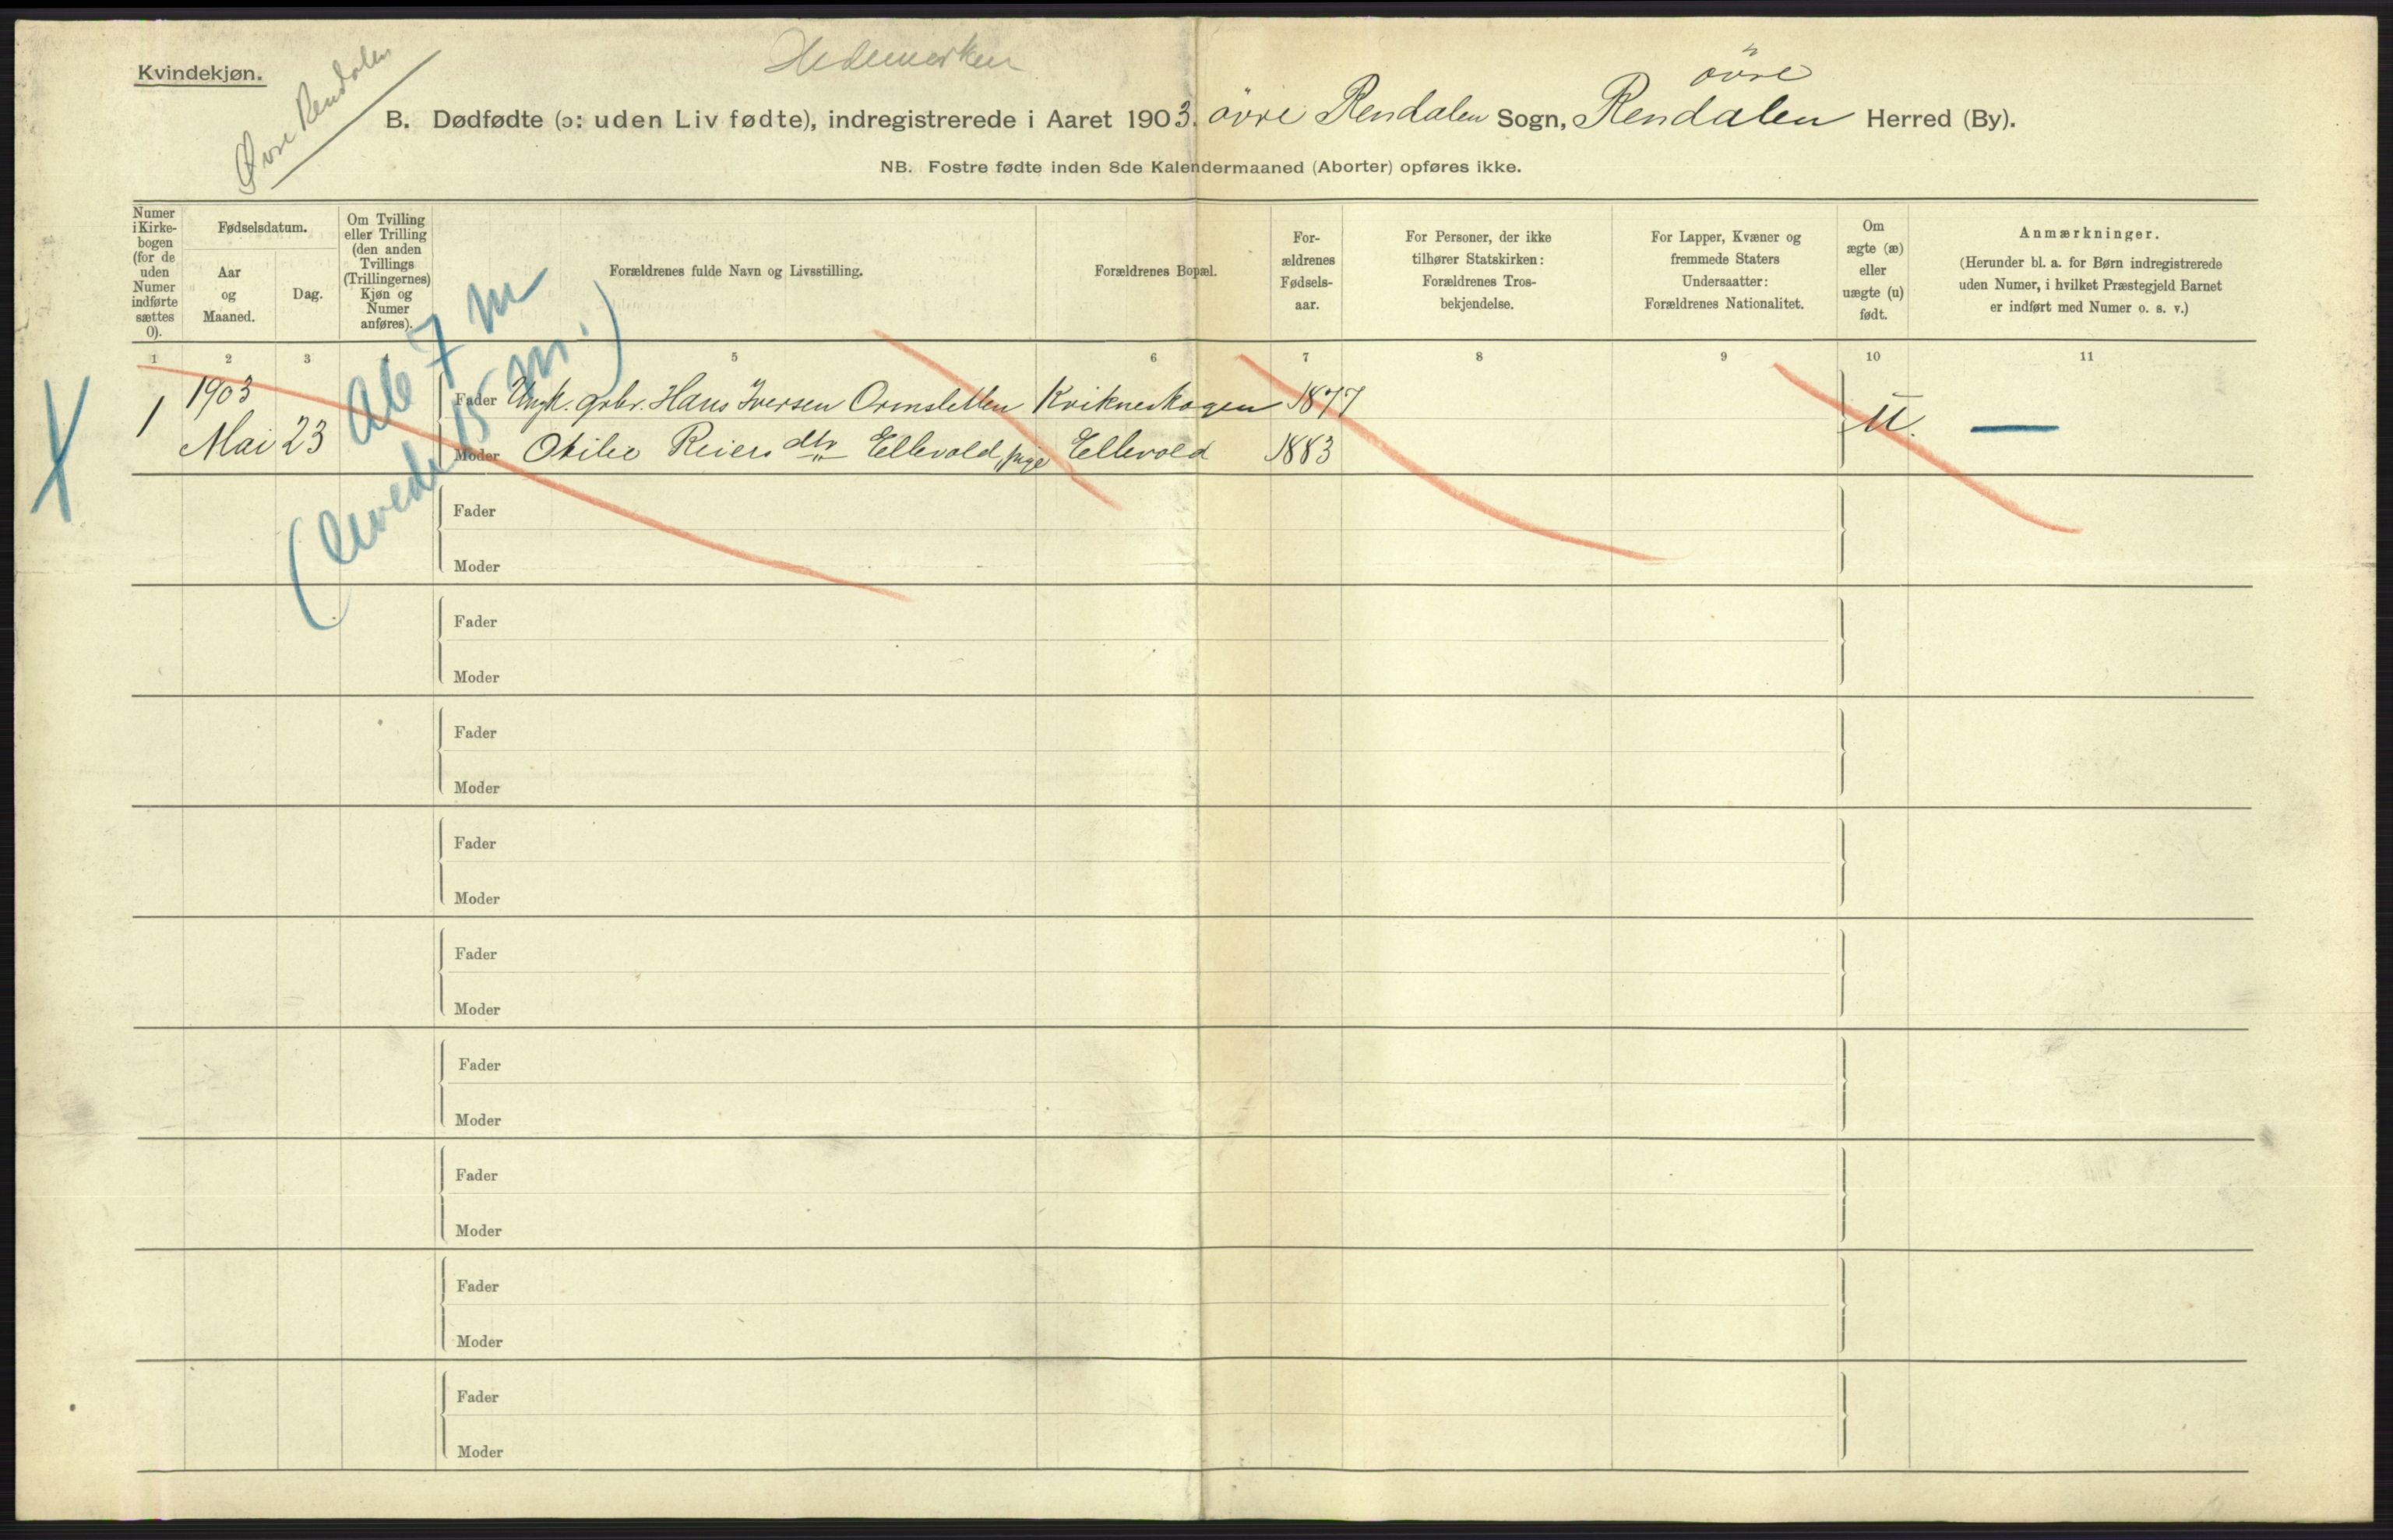 Hedemarken
Kvindekjøn.
Øvre Rendalen
øvre
B. Dødfødte (ɔ: uden Liv fødte), indregistrerede i Aaret 1903. øvre Rendalen Sogn, Rendalen Herred (By).
NB. Fostre fødte inden 8de Kalendermaaned (Aborter) opføres ikke.
Numer
i Kirke-
bogen
(for de
uden
Numer
indførte
sættes
0).
Fødselsdatum.
Aar
og
Maaned.
Dag.
Om Tvilling
eller Trilling
(den anden
Tvillings
(Trillingernes)
Kjøn og
Numer
anføres).
Forældrenes fulde Navn og Livsstilling.
Forældrenes Bopæl.
For-
ældrenes
Fødsels-
aar.
For Personer, der ikke
tilhører Statskirken:
Forældrenes Tros-
bekjendelse.
For Lapper, Kvæner og
fremmede Staters
Undersaatter:
Forældrenes Nationalitet.
Om
ægte (æ)
eller
uægte (u)
født.
Anmærkninger.
(Herunder bl. a. for Børn indregistrerede
uden Numer, i hvilket Præstegjeld Barnet
er indført med Numer o. s. v.)
1 2 3 4 5 6 7 8 9 10 11
Ab 7 m
m.)
1903
1 Mai 23
Fader Ungk. gbr. Hans Iversen Ormsletten Kvikneskogen 1877
Moder Otilie Reiers dtr Ellevold, pige Ellevold 1883
U.
Fader
Moder
Fader
Moder
Fader
Moder
Fader
Moder
Fader
Moder
Fader
Moder
Fader
Moder
Fader
Moder
Fader
Moder